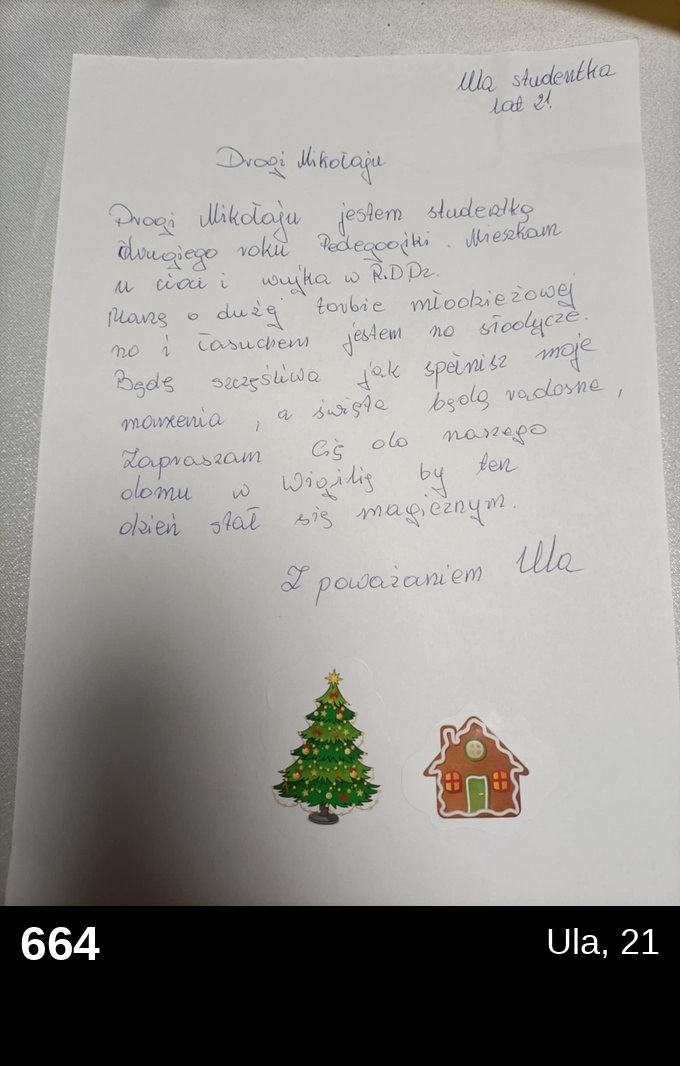 Ula studentka
lat 21.
Drogi Mikołaju
Drogi Mikołaju jestem studentką
drugiego roku Pedegogiki. Mieszkam
u cioci i wujka w R.D.Dz.
Marzę o dużej torbie młodzieżowej
no i łasuchem jestem na słodycze.
Będę szczęśliwa jak spełnisz moje
marzenia, a święta będą radosne,
Zapraszam Cię do naszego
domu w Wigilię by ten
dzień stał się magicznym.
Z poważaniem Ula
664
Ula, 21